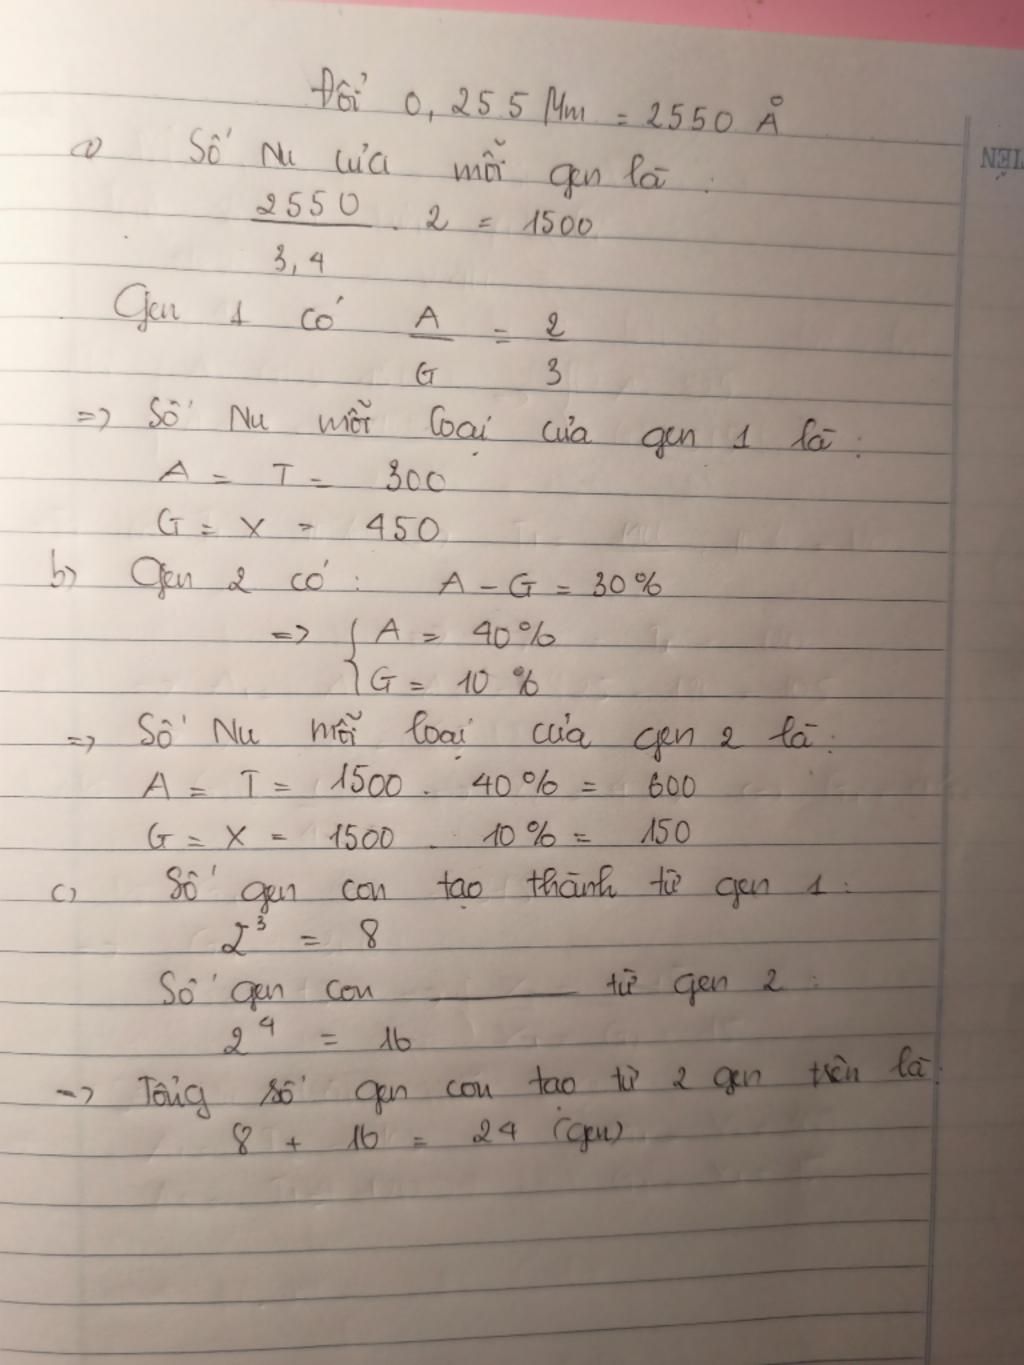 Đổi 0,255 Mm = 2550 Å
a) Số Nu của mỗi gen là :
2550
. 2 = 1500
3,4
Gen 1 có A = 2
G 3
=> Số Nu mỗi loại của gen 1 là :
A = T = 300
G = X = 450
b) Gen 2 có : A - G = 30%
=> { A = 40%
G = 10 %
=> Số Nu mỗi loại của gen 2 là :
A = T = 1500 . 40% = 600
G = X = 1500 . 10% = 150
c) Số gen con tạo thành từ gen 1 :
2³ = 8
Số gen con ——— từ gen 2 :
2⁴ = 16
=> Tổng số gen con tạo từ 2 gen trên là :
8 + 16 = 24 (gen)